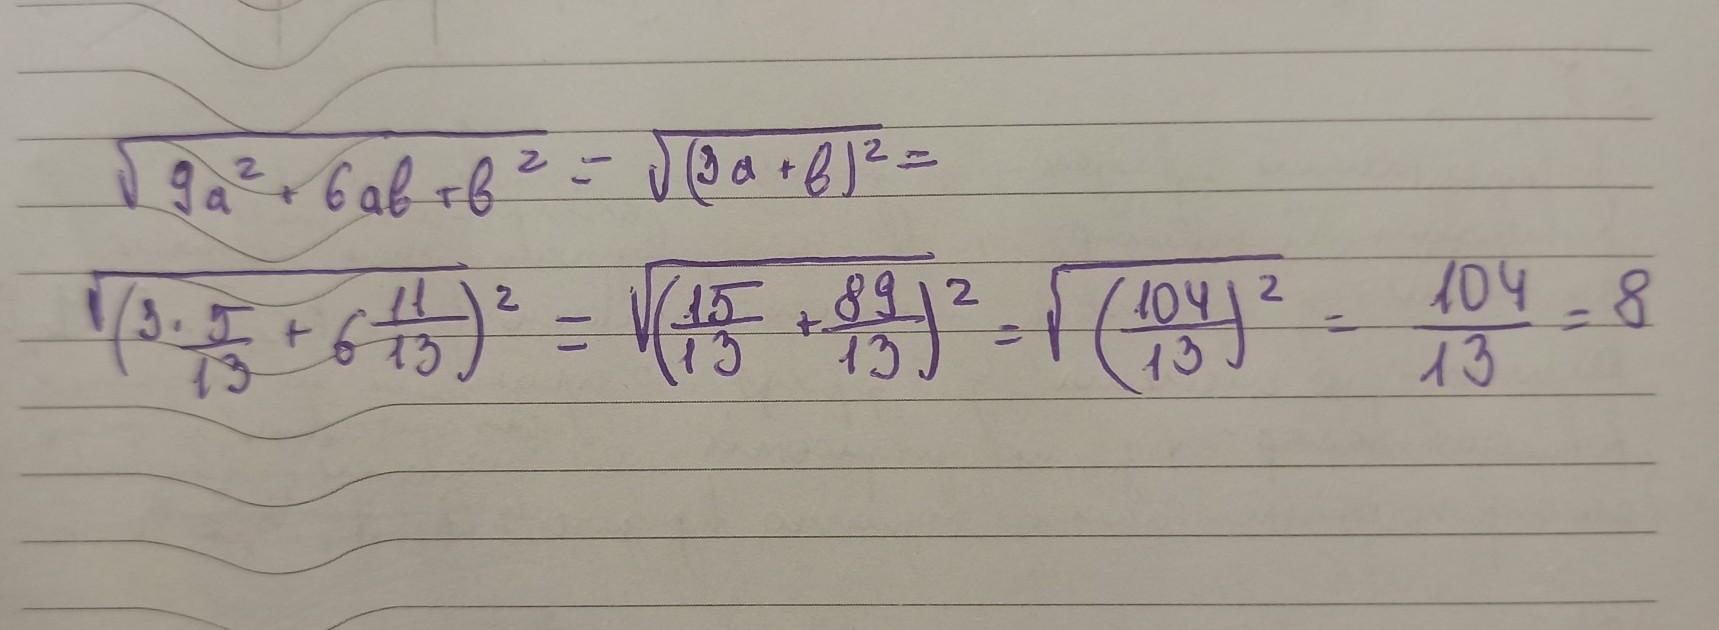 √(9a² + 6ab + b²) = √((3a + b)²) =
√((3 · 5/13 + 6 11/13)²) = √((15/13 + 89/13)²) = √((104/13)²) = 104/13 = 8